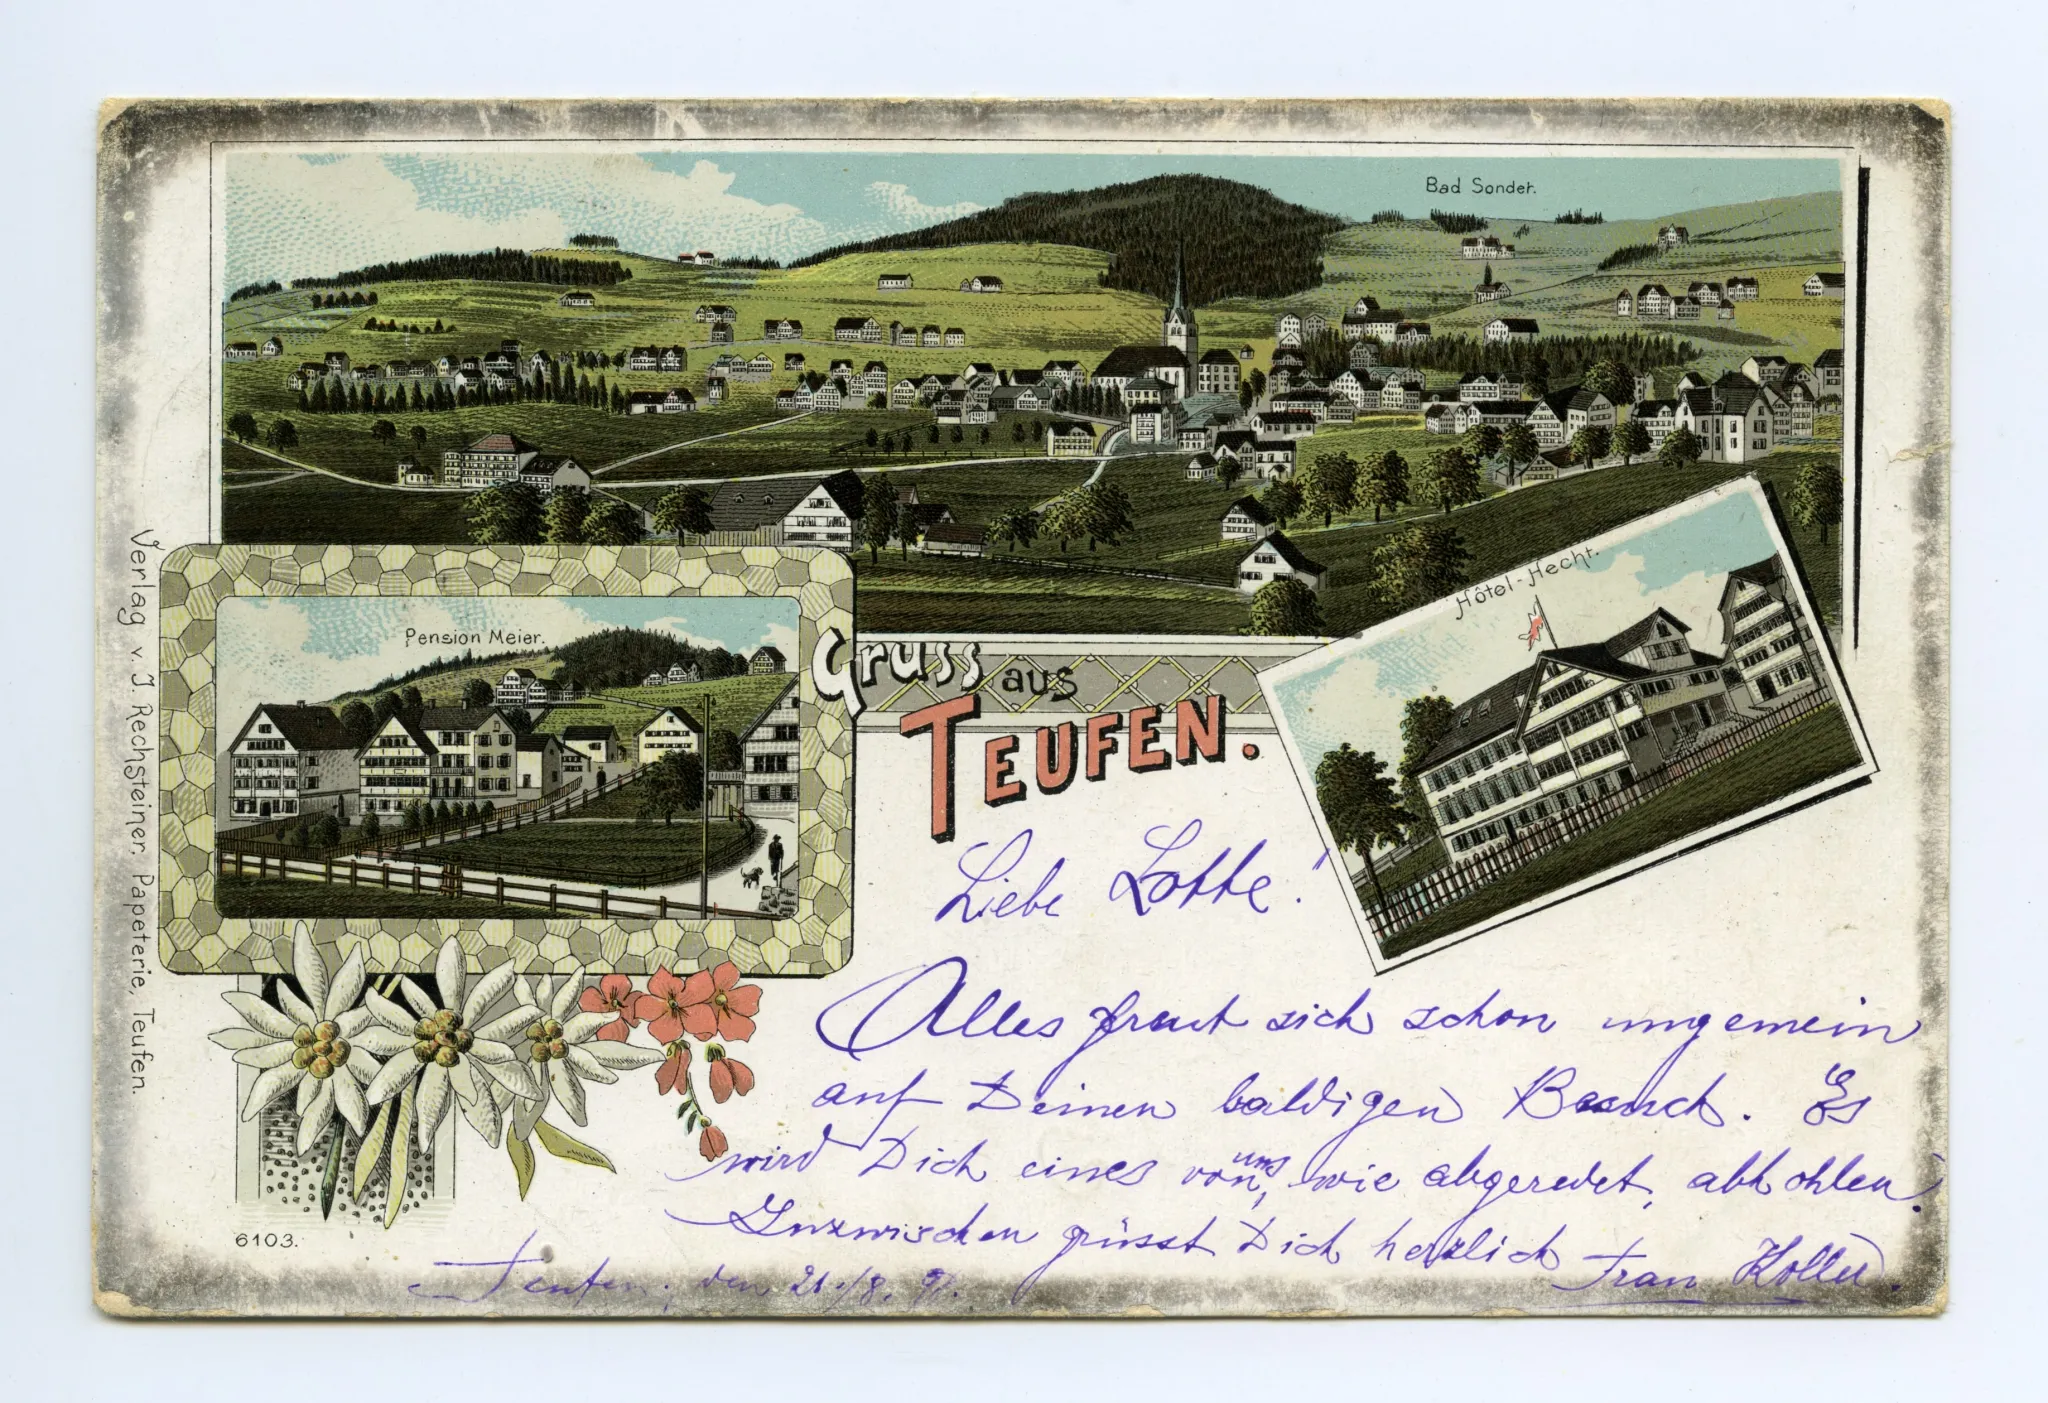 Bad Sonder.
Hôtel-Hecht.
Pension Meier.
Gruss aus
TEUFEN.
Verlag v. J. Rechsteiner, Papeterie, Teufen.
Liebe Lotte!
Alles freut sich schon ungemein
auf Deinen baldigen Besuch. Es
wird Dich eines von uns, wie abgeredet, abhohlen.
Inzwischen grüsst Dich herzlich Frau Koller.
6103.
Teufen, den 21./8.